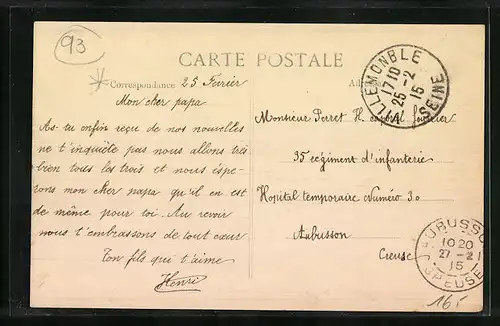 93
CARTE POSTALE
Correspondance
25 Fevrier
Mon cher papa
As-tu enfin reçu de nos nouvelles
ne t'inquiète pas nous allons très
bien tous les trois et nous éspe-
rons mon cher papa qu'il en est
de même pour toi. Au revoir
nous t'embrassons de tout cœur
Ton fils qui t'aime
Henri
Monsieur Perret H. caporal fourrier
35 régiment d'infanterie
Hopital temporaire Numéro 30
Aubusson
Creuse
VILLEMONBLE
17 10
25 -2
15
SEINE
AUBUSSON
10 20
27 -2
15
CREUSE
165